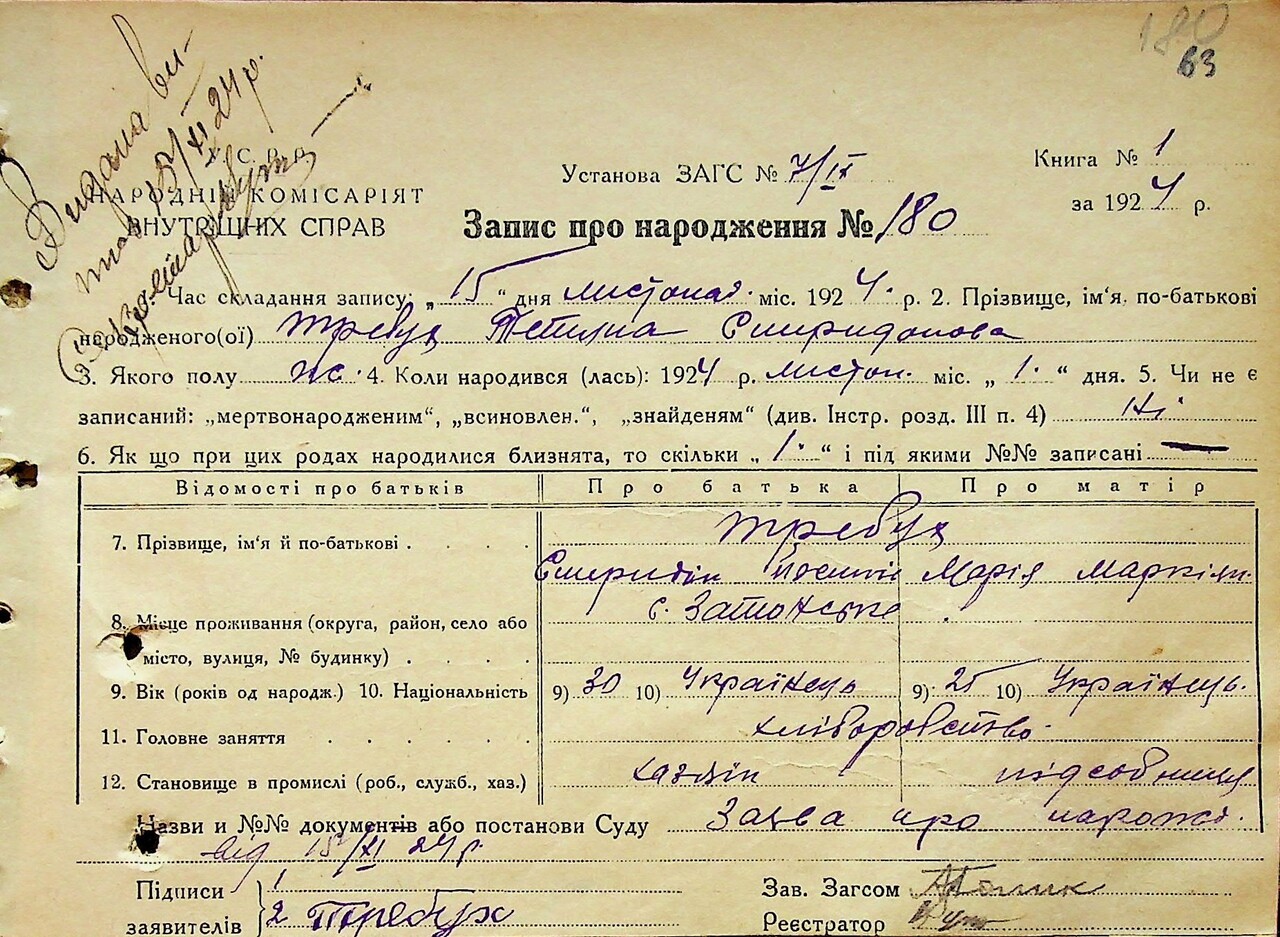 180
63
Видана ви-
15/XI 24 р.
У. С. Р. Р.
НАРОДНІЙ КОМІСАРІЯТ
ВНУТРІШНІХ СПРАВ
Установа ЗАГС № 7/IX
Книга № 1
за 1924 р.
Запис про народження № 180
Час складання запису: „15“ дня листопад. міс. 1924. р. 2. Прізвище, ім'я, по-батькові
народженого(ої) Требух Спиридонова
3. Якого полу ж. 4. Коли народився (лась): 1924 р. листоп. міс. „1.“ дня. 5. Чи не є
записаний: „мертвонародженим“, „всиновлен.“, „знайденям“ (див. Інстр. розд. III п. 4) Ні
6. Як що при цих родах народилися близнята, то скільки „1.“ і під якими №№ записані —
Відомості про батьків Про батька Про матір
7. Прізвище, ім'я й по-батькові . . . . Требух
Спиридін Йосипів Марія Маркіян.
с. Затонське
8. Місце проживання (округа, район, село або
місто, вулиця, № будинку) . . . .
9. Вік (років од народж.) 10. Національність 9) 30 10) Українець 9) 25 10) Українець.
11. Головне заняття . . . . . хліборобство.
12. Становище в промислі (роб., служб., хаз.) хазяін підсобниця
Назви и №№ документів або постанови Суду Заява про нарожд.
від 15/XI 24 р.
Підписи
заявителів
1
2 Требух
Зав. Загсом
Реєстратор